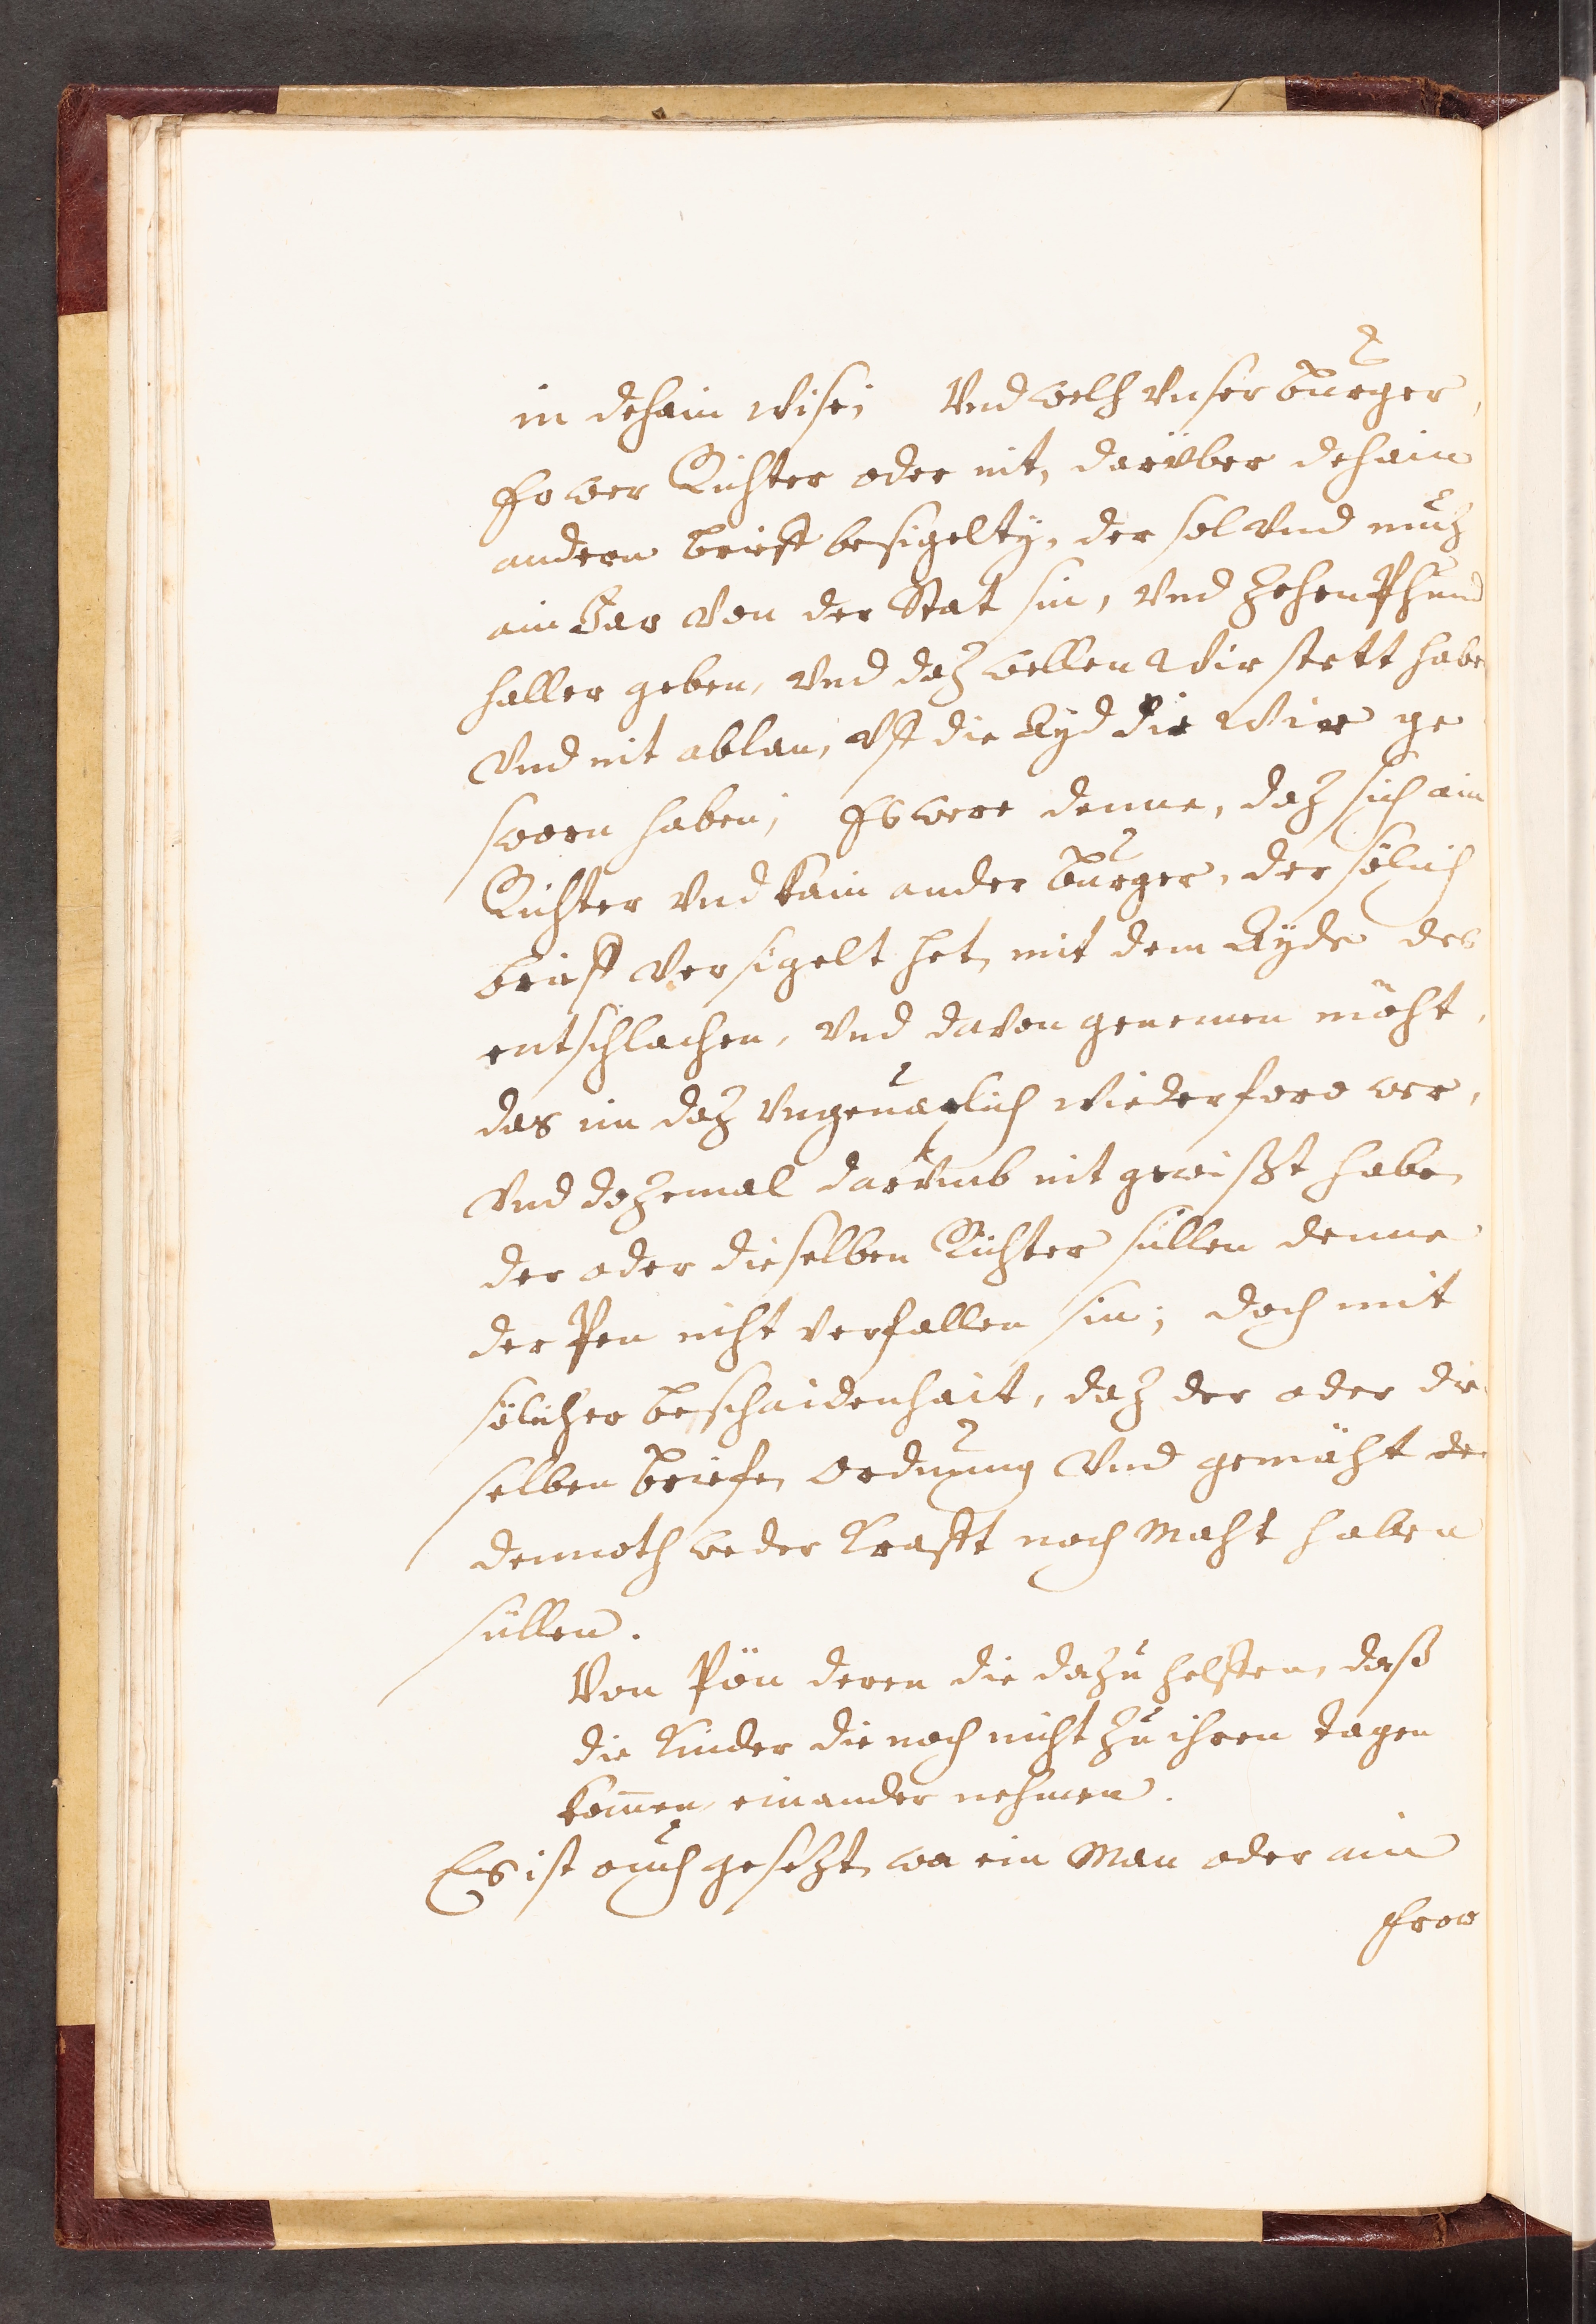 in dehain wise; Vnd welh vnser burger,
Er wer Richter oder nit, darüber dehain
andern brieff besigelty, der sol vnd muz
ain Jar von der Stat sin, vnd zehen Pfund
haller geben, vnd daz wellen Wir stett habe
vnd nit ablan, vff die Ayd die Wir ge
sworn haben; Es were denne, daz sich ain
Richter vnd kain ander burger, der sölich
brieff versigelt het, mit dem Ayde des
entschlachen, vnd davon genemen möht,
das im daz vngeuarlich wiederfare wer,
vnd dozemal darvmb nit gewißt habe,
der oder dieselben Richter süllen denne
der Pen niht verfallen sin; doch mit
sölicher bescheidenhait, daz der oder die
selben briefe, ordnung vnd gemäht
dennoth weder Krafft noch Maht haben
süllen.
Von Pön deren die dazu helffen, daß
die Kinder die noch nicht zu ihren tagen
kom̄en, einander nehmen.
Es ist ouch gesetzt, wa ein Man oder ain
Frow